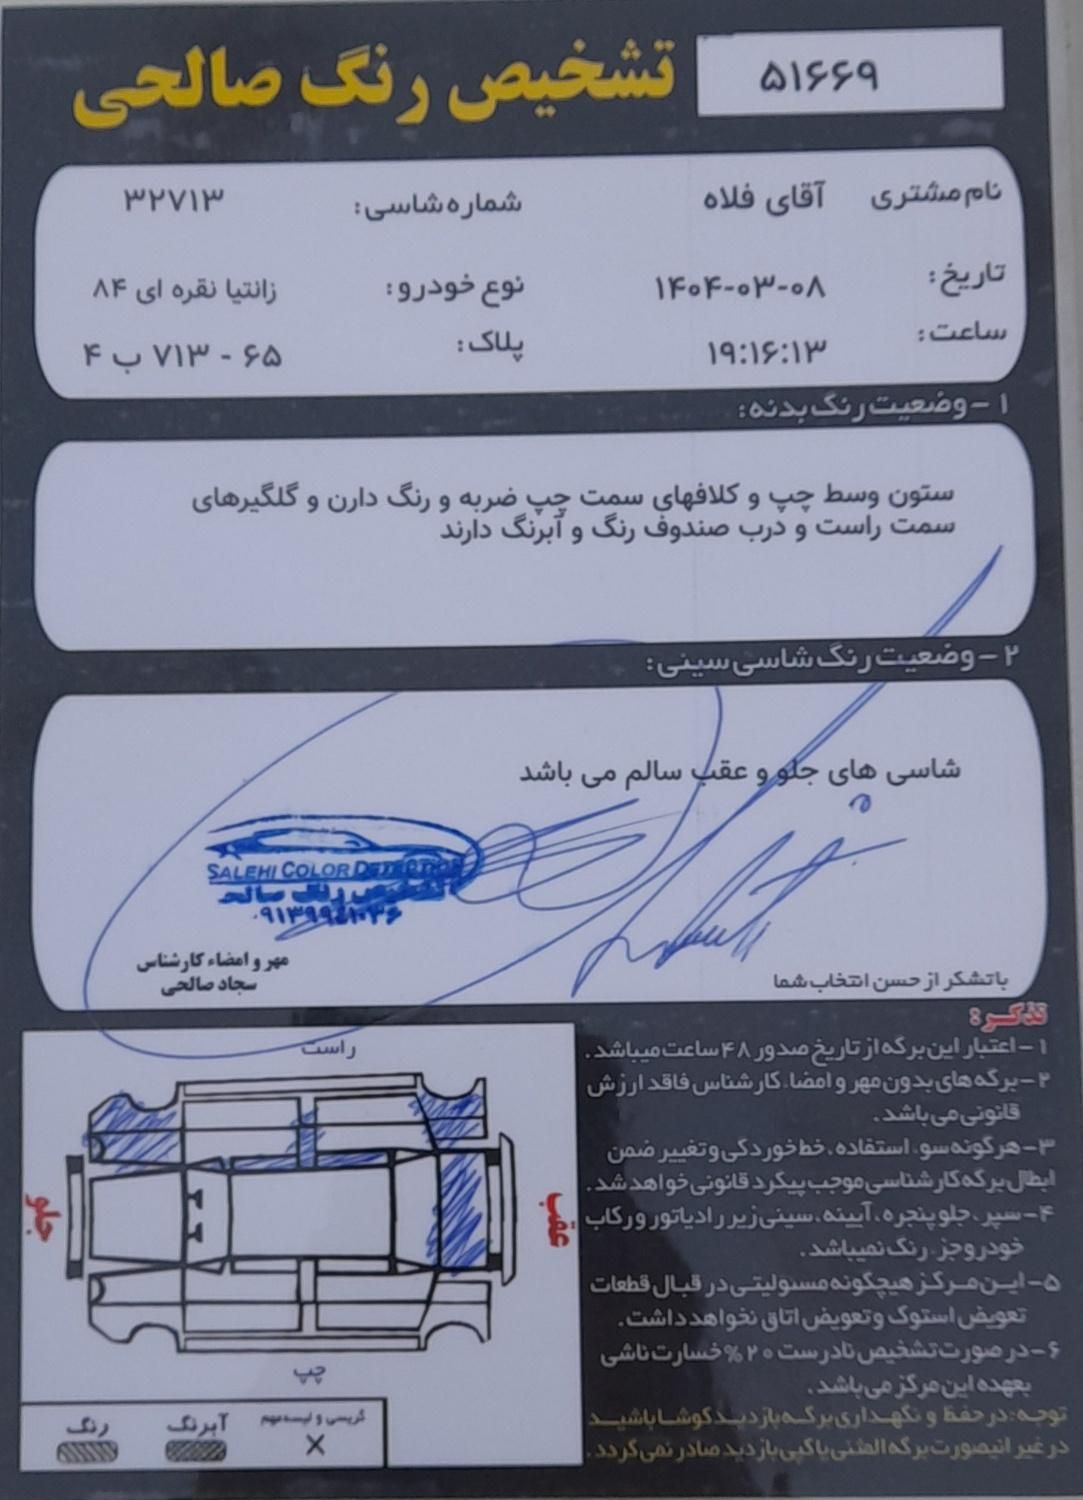 تشخیص رنگ صالحی
۵۱۶۶۹
نام مشتری آقای فلاه شماره شاسی: ۳۲۷۱۳
تاریخ: ۱۴۰۴-۰۳-۰۸ نوع خودرو: زانتیا نقره ای ۸۴
ساعت: ۱۹:۱۶:۱۳ پلاک: ۶۵ - ۷۱۳ ب ۴
۱ - وضعیت رنگ بدنه:
ستون وسط چپ و کلافهای سمت چپ ضربه و رنگ دارن و گلگیرهای
سمت راست و درب صندوف رنگ و آبرنگ دارند
۲ - وضعیت رنگ شاسی سینی:
شاسی های جلو و عقب سالم می باشد
SALEHI COLOR DETECTION
تشخیص رنگ صالحی
مهر و امضاء کارشناس
سجاد صالحی
باتشکر از حسن انتخاب شما
تذکر:
۱- اعتبار این برگه از تاریخ صدور ۴۸ ساعت میباشد.
۲- برگه های بدون مهر و امضاء کارشناس فاقد ارزش
قانونی می باشد.
۳- هرگونه سوء استفاده، خط خوردگی و تغییر ضمن
ابطال برگه کارشناسی موجب پیگرد قانونی خواهد شد.
۴- سپر، جلو پنجره، آیینه، سینی زیر رادیاتور و رکاب
خودرو جزء رنگ نمیباشد.
۵- این مرکز هیچگونه مسئولیتی در قبال قطعات
تعویض استوک و تعویض اتاق نخواهد داشت.
۶- در صورت تشخیص نادرست ۲۰% خسارت ناشی
بعهده این مرکز می باشد.
توجه: در حفظ و نگهداری برگه بازدید کوشا باشید
در غیر اینصورت برگه المثنی یا کپی بازدید صادر نمی گردد.
راست
جلو
عقب
چپ
رنگ
آبرنگ
گریسی و لیسه مهم
×